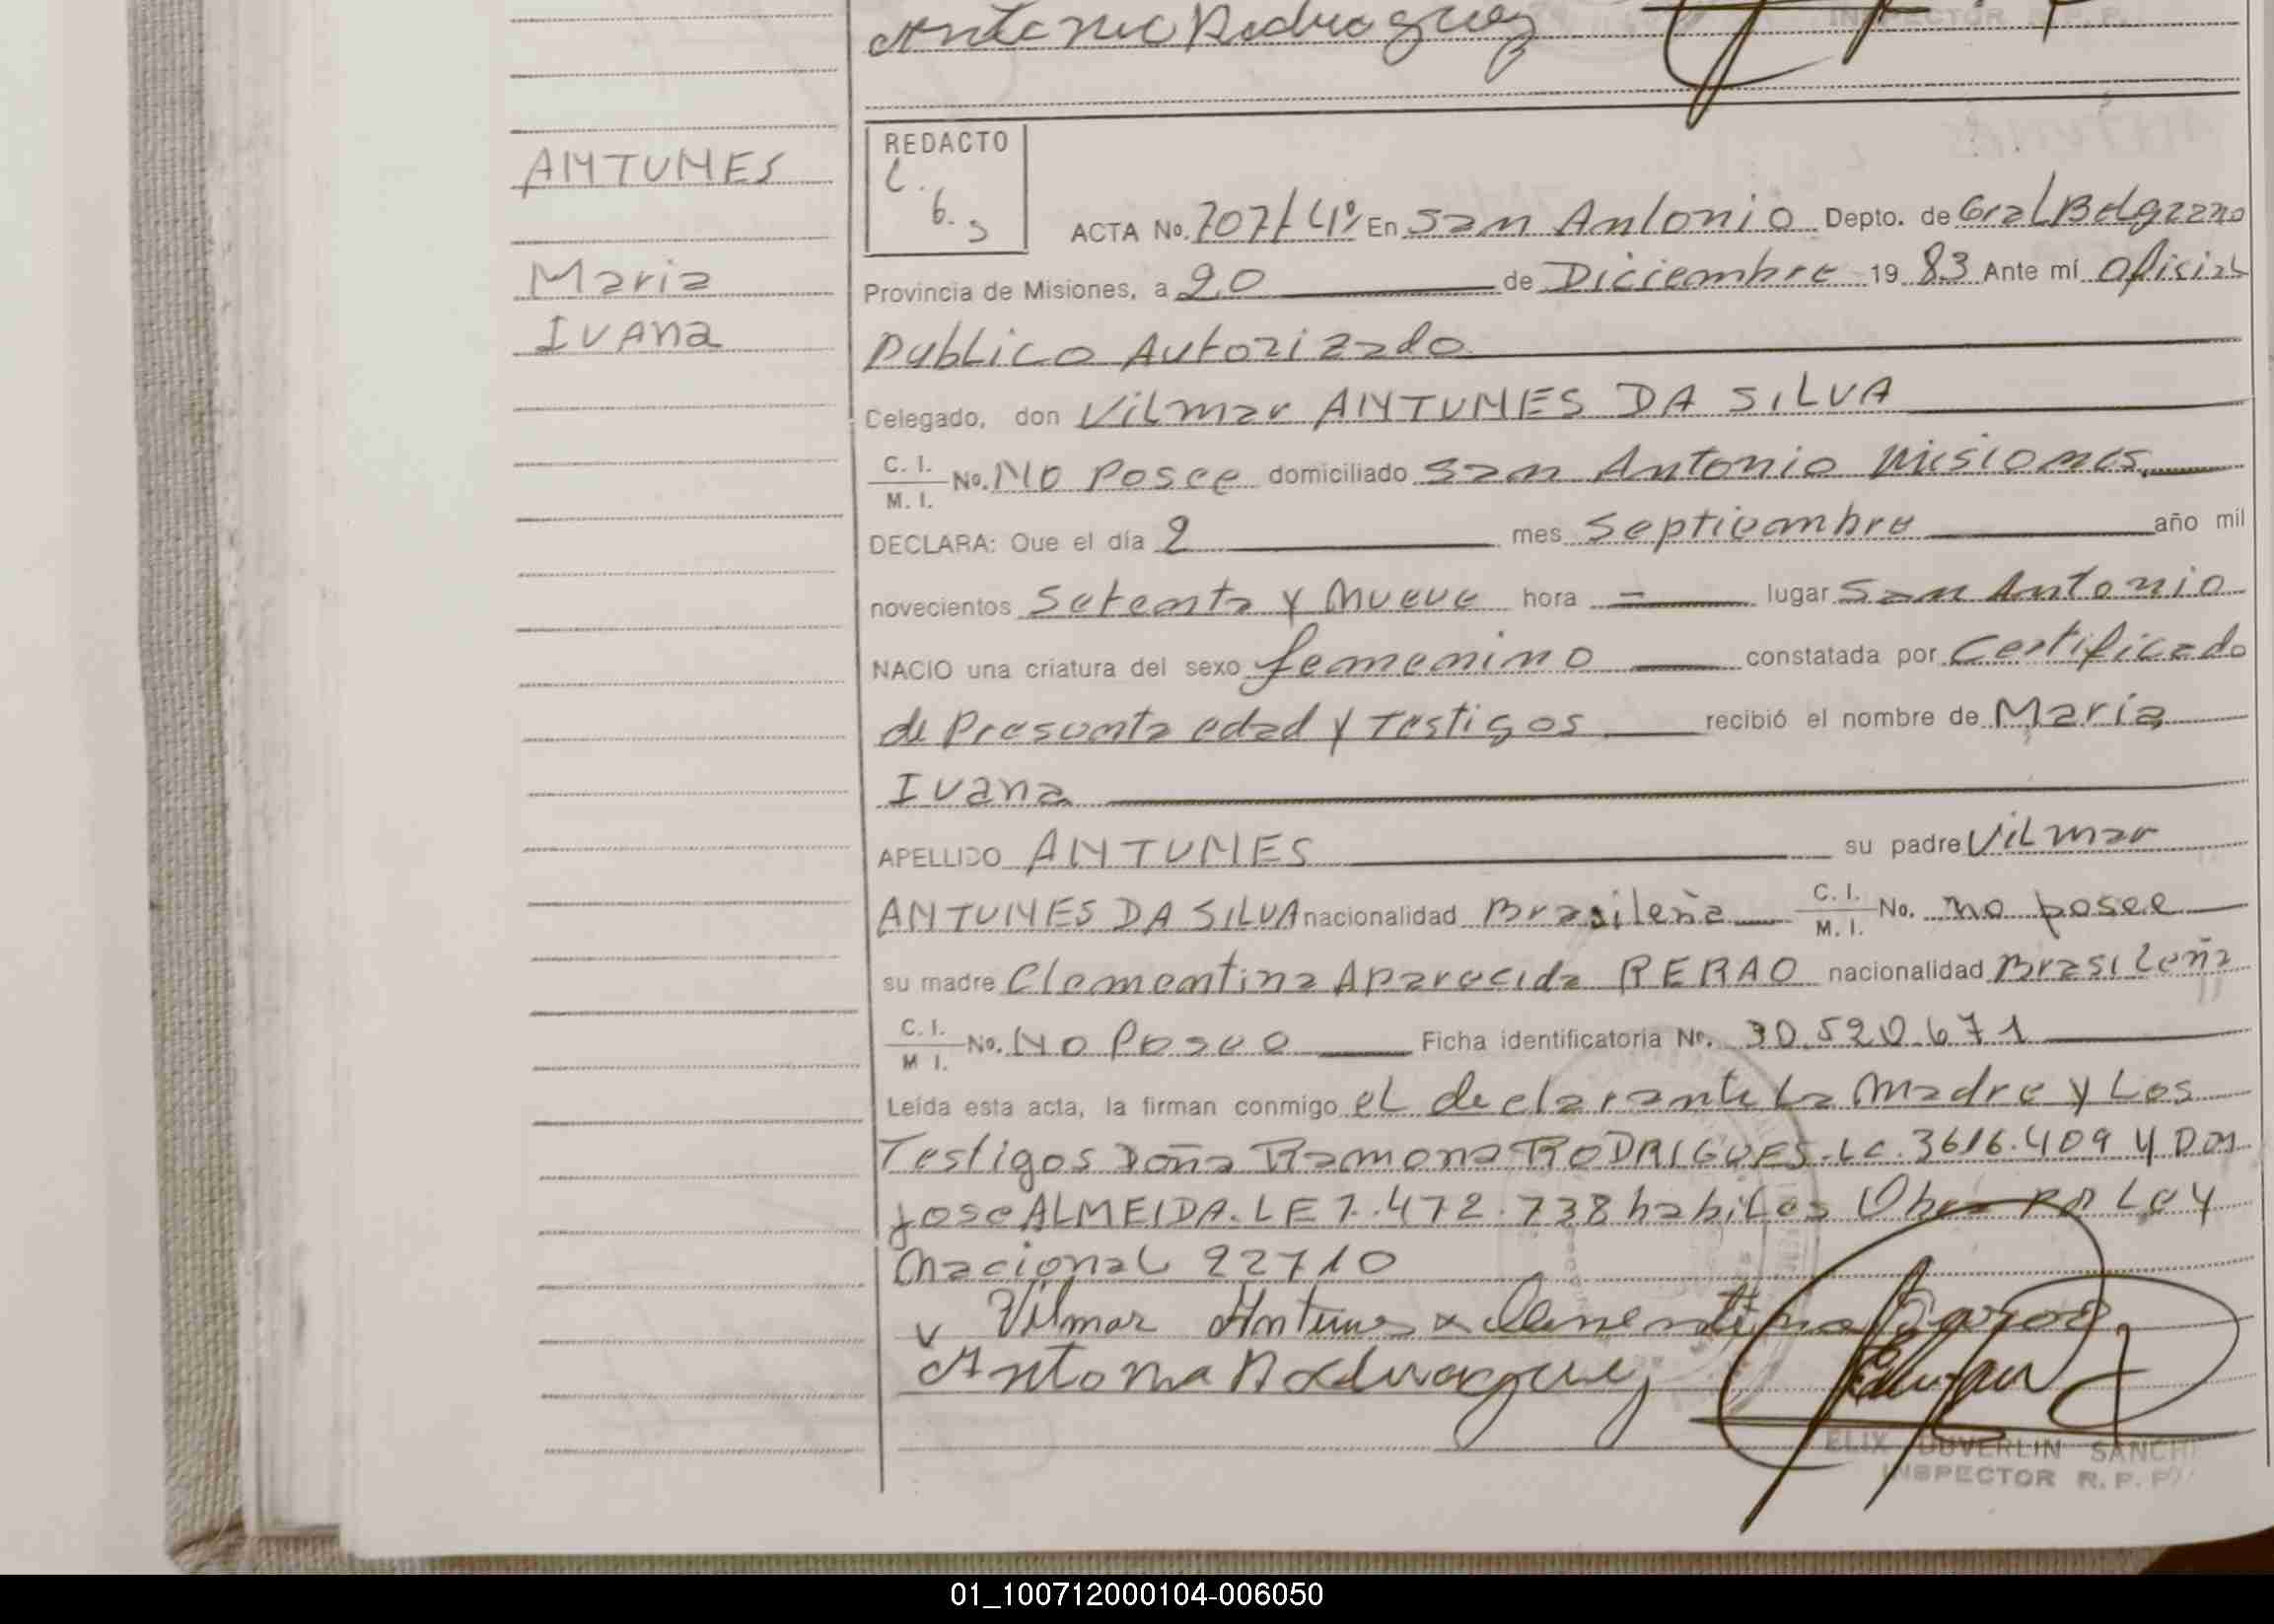 Antonio Rodriguez
INSPECTOR R. P.
ANTUNES
Maria
Ivana
REDACTO
C.
b.
s
ACTA No. 707/4º En San Antonio Depto. de Gral Belgrano
Provincia de Misiones, a 20 de Diciembre 19 83 Ante mí oficial
Publico Autorizado
Celegado, don Vilmar ANTUNES DA SILVA
C. I.
M. I. No. No Posee domiciliado San Antonio Misiones
DECLARA: Que el día 2 mes Septiembre año mil
novecientos Setenta y Nueve hora = lugar San Antonio
NACIO una criatura del sexo femenino constatada por Certificado
de Presunta edad y Testigos recibió el nombre de María
Ivana
APELLIDO ANTUNES su padre Vilmar
ANTUNES DA SILVA nacionalidad Brasileña C. I. M. I. No. no posee
su madre Clementina Aparecida RERAO nacionalidad Brasileña
C. I.
M I. No. No Poseo Ficha identificatoria Nr. 30.520.671
Leída esta acta, la firman conmigo el declarante La Madre y Los
Testigos Doña Ramona RODRIGUES. LC. 3616.409 y Don
Jose ALMEIDA. LE 7.472.738 habiles Ley
Nacional 22710
Vilmar Antunes x Clementina
Antonia Rodriaguez
ELIX DUVERLIN SANCH
INSPECTOR R. P. P.
01_100712000104-006050